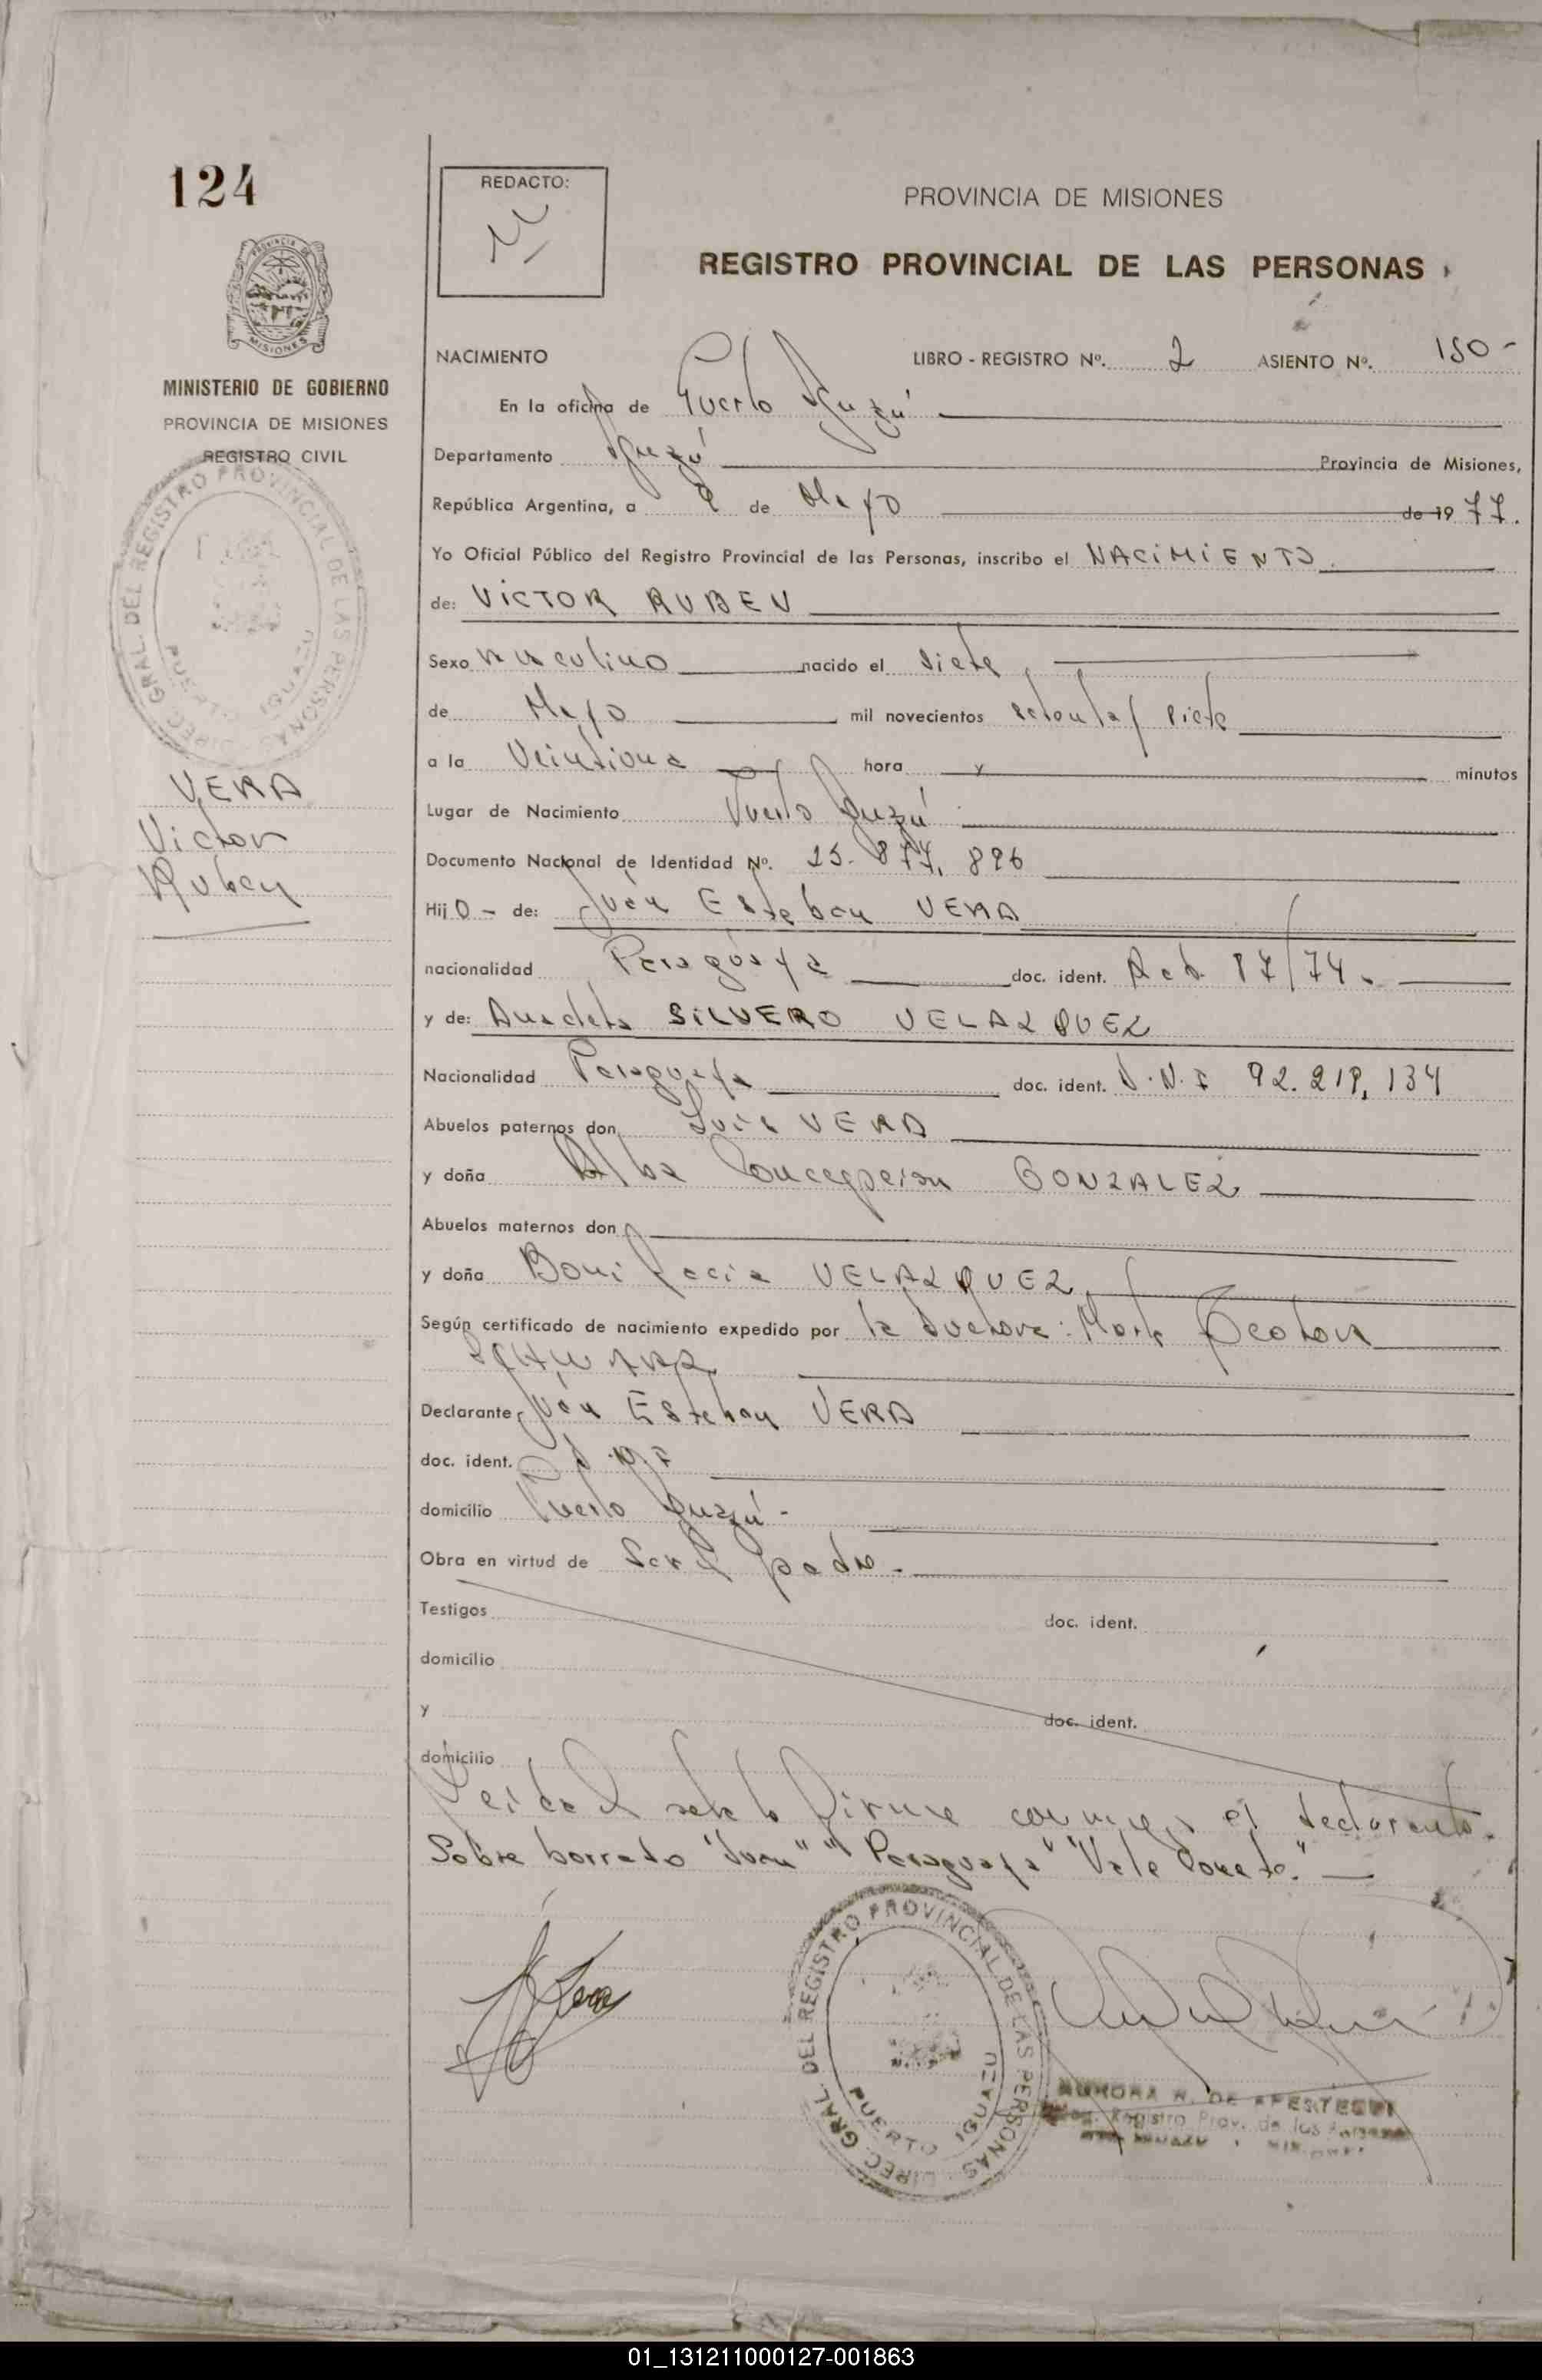 124
REDACTO:
PROVINCIA DE MISIONES
REGISTRO PROVINCIAL DE LAS PERSONAS
MISIONES
MINISTERIO DE GOBIERNO
PROVINCIA DE MISIONES
REGISTRO CIVIL
DIREC. GRAL. DEL REGISTRO PROVINCIAL DE LAS PERSONAS
PUERTO IGUAZU
VERA
Victor
Ruben
NACIMIENTO LIBRO - REGISTRO Nº. 2 ASIENTO Nº. 150-
En la oficina de Puerto Iguazú
Departamento Iguazú Provincia de Misiones,
República Argentina, a 9 de Mayo de 1977.
Yo Oficial Público del Registro Provincial de las Personas, inscribo el NACIMIENTO.
de: VICTOR RUBEN
Sexo masculino nacido el siete
de Mayo mil novecientos setenta y siete
a la veintiuna hora y minutos
Lugar de Nacimiento Puerto Iguazú
Documento Nacional de Identidad Nº. 25.877.896
Hijo - de: Juan Esteban VERA
nacionalidad Paraguaya doc. ident. Rad. 87/74.
y de: SILVERO VELAZQUEZ
Nacionalidad Paraguaya doc. ident. D.N.I 92.219.134
Abuelos paternos don Luis VERA
y doña Alba Concepcion GONZALEZ
Abuelos maternos don
y doña Bonifacia VELAZQUEZ
Según certificado de nacimiento expedido por la doctora: Marta
SCHWARZ
Declarante Juan Esteban VERA
doc. ident. D.N.I
domicilio Puerto Iguazú-
Obra en virtud de ser el padre.
Testigos doc. ident.
domicilio
y doc. ident.
domicilio
Leida el acta la firma conmigo el declarante.
Sobre borrado "Juan" "Paraguaya" "Vale Conste."
Vera
DIREC. GRAL. DEL REGISTRO PROVINCIAL DE LAS PERSONAS
PUERTO IGUAZU
AURORA R. DE APESTEGUI
Registro Prov. de las Personas
01_131211000127-001863